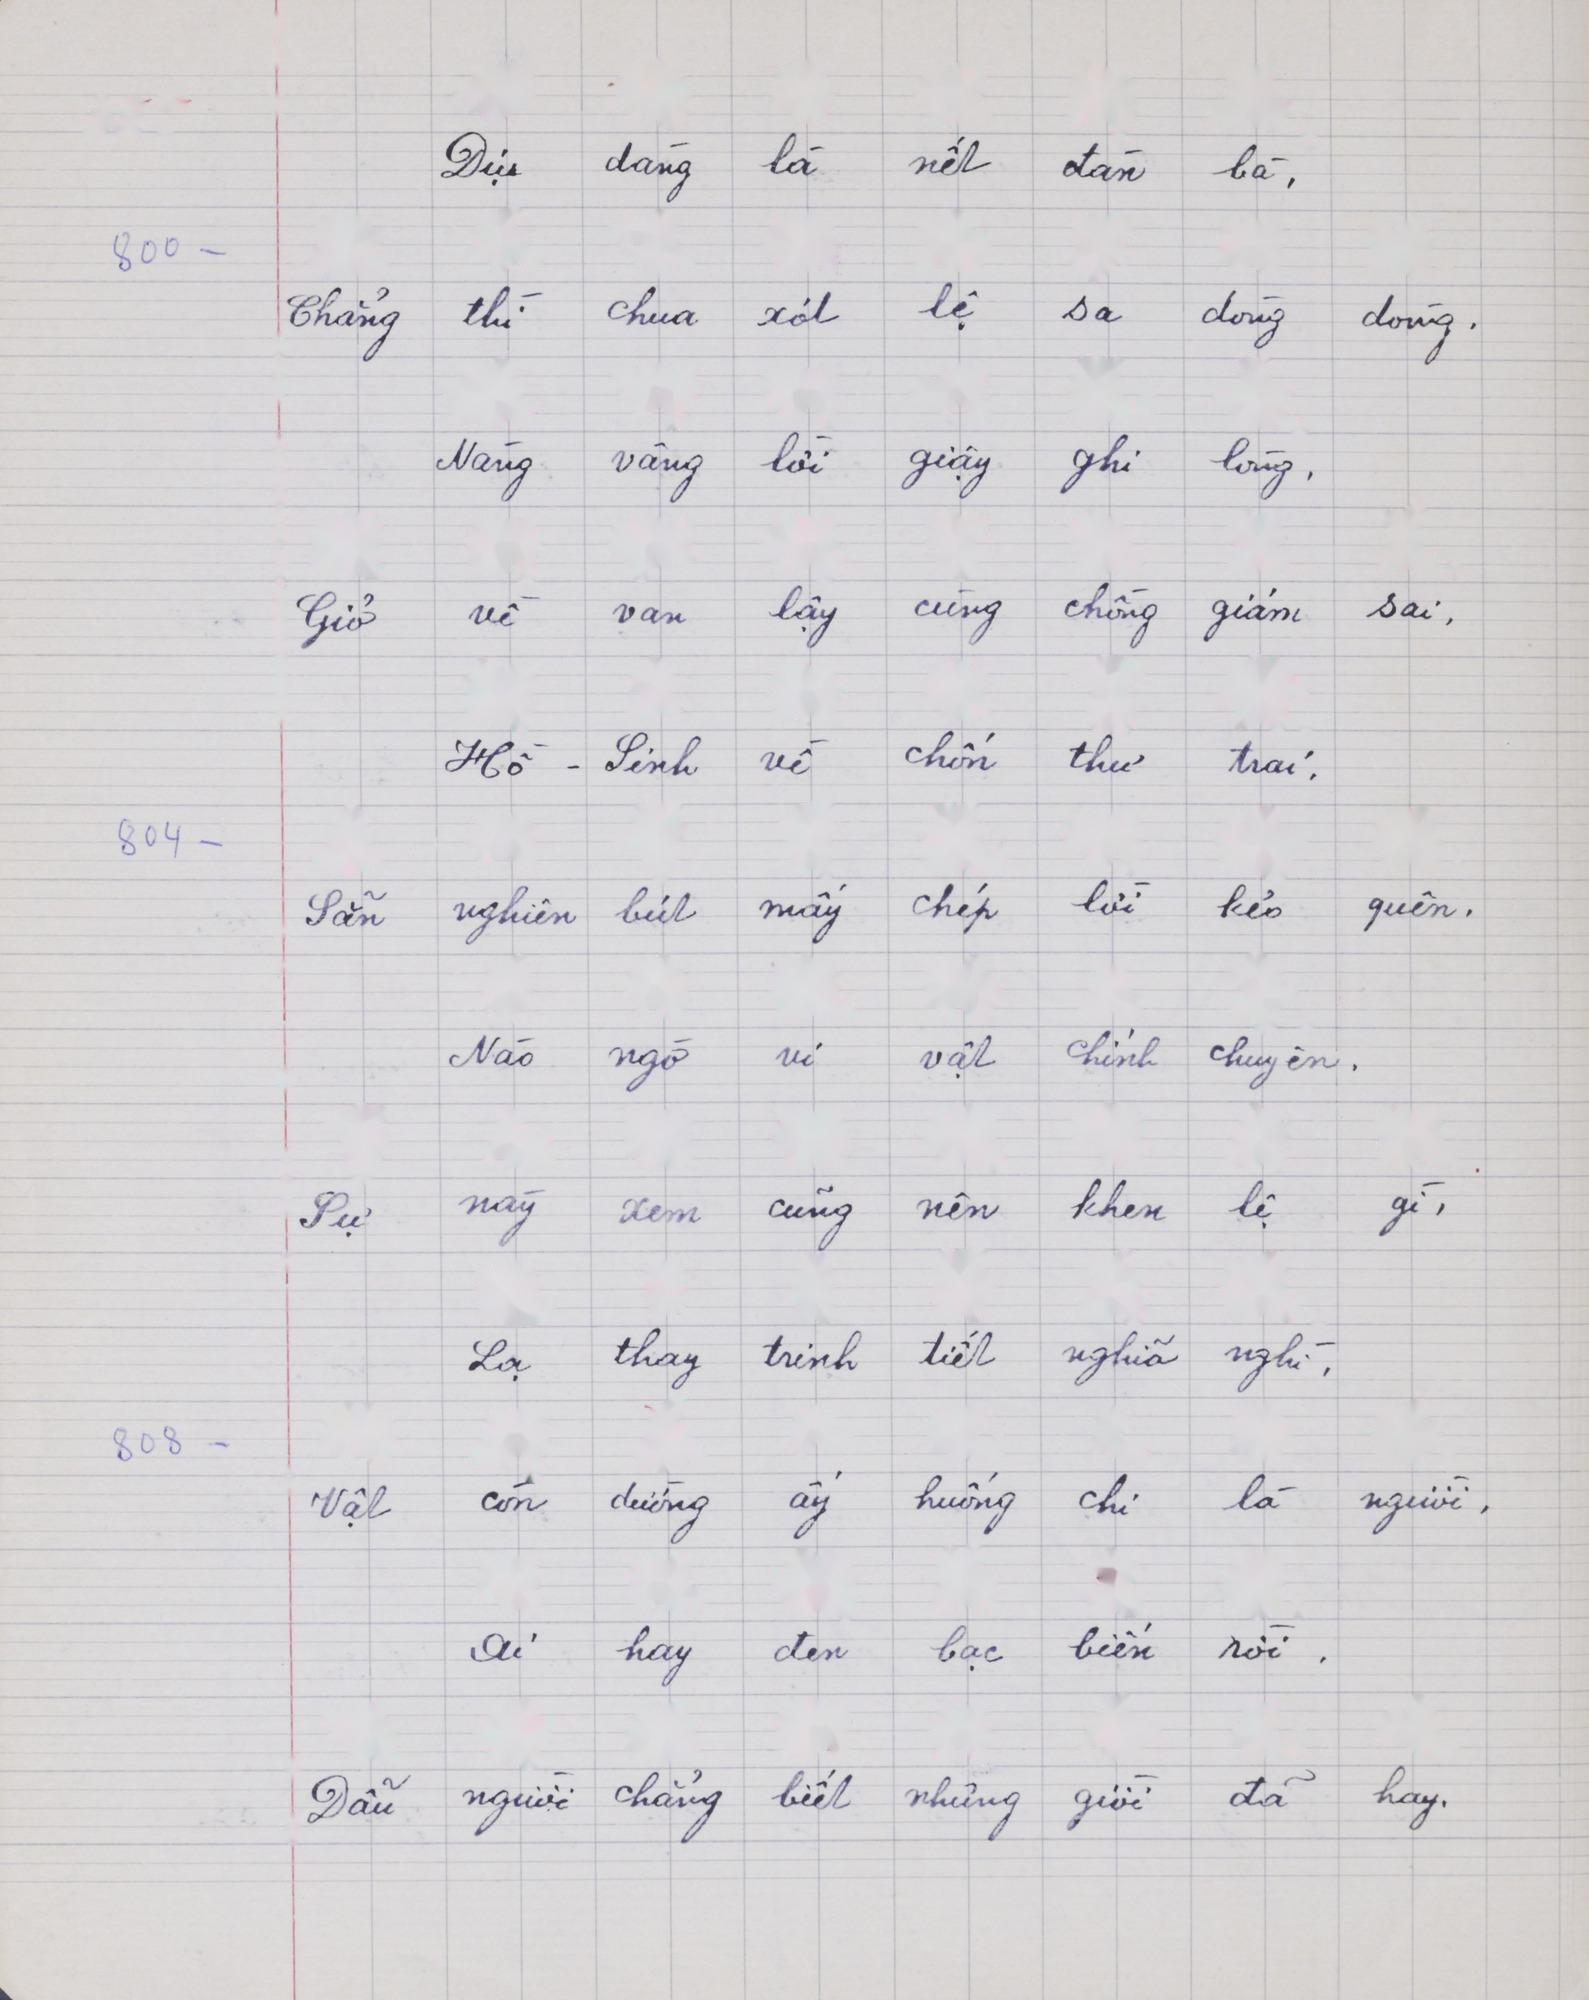 Dịu dàng là nết đàn bà,
800 –
Chẳng thì chua xót lệ sa dòng dòng.
Nàng vâng lời giậy ghi lòng,
Giở về van lậy cùng chồng giám sai,
Hồ - Sinh về chốn thư trai,
804 –
Sẵn nghiên bút mấy chép lời kẻo quên.
Nào ngờ vi vật chính chuyên,
Sự này xem cũng nên khen lệ gì,
Lạ thay trinh tiết nghĩa nghì,
808 –
Vật còn dường ấy huống chi là người,
Ai hay đen bạc biến rời,
Dẫu người chẳng biết nhưng giời đã hay.